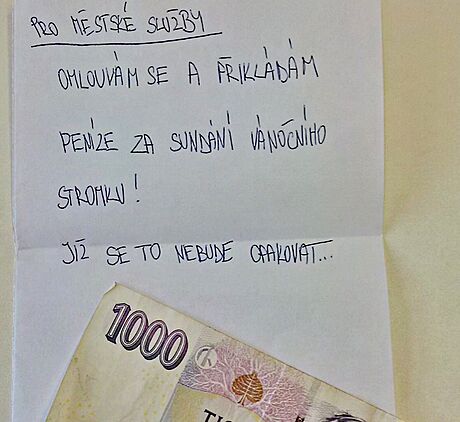 PRO MĚSTSKÉ SLUŽBY
OMLOUVÁM SE A PŘIKLÁDÁM
PENÍZE ZA SUNDÁNÍ VÁNOČNÍHO
STROMKU!
JIŽ SE TO NEBUDE OPAKOVAT...
1000